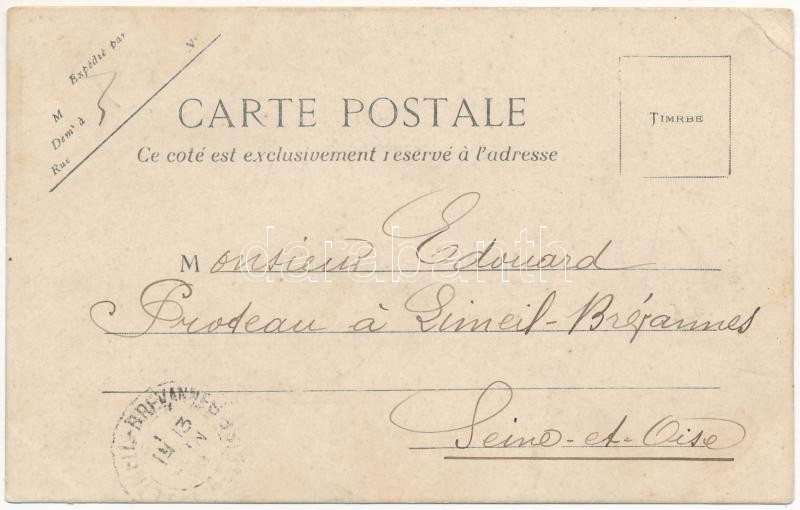 Expédié par
V.
M
Demt à
Rue
3
CARTE POSTALE
Ce coté est exclusivement reservé à l'adresse
TIMRBE
Monsieur Edouard
Proteau à Limeil-Brévannes
Seine-et-Oise
LIMEIL-BREVANNES
13
darabanth